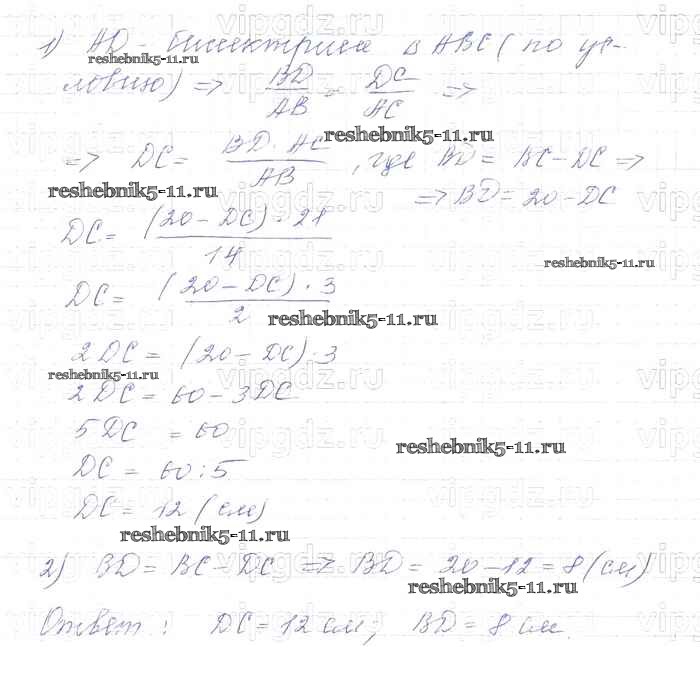 1) AD - биссектриса Δ ABC (по ус-
reshebnik5-11.ru
ловию) => BD/AB = DC/AC =>
reshebnik5-11.ru
=> DC = BD · AC / AB, где BD = BC - DC =>
reshebnik5-11.ru
=> BD = 20 - DC
DC = (20 - DC) · 21 / 14
reshebnik5-11.ru
DC = (20 - DC) · 3 / 2
reshebnik5-11.ru
2 DC = (20 - DC) · 3
reshebnik5-11.ru
2 DC = 60 - 3 DC
5 DC = 60
reshebnik5-11.ru
DC = 60 : 5
DC = 12 (см)
reshebnik5-11.ru
2) BD = BC - DC => BD = 20 - 12 = 8 (см)
reshebnik5-11.ru
Ответ: DC = 12 см; BD = 8 см.